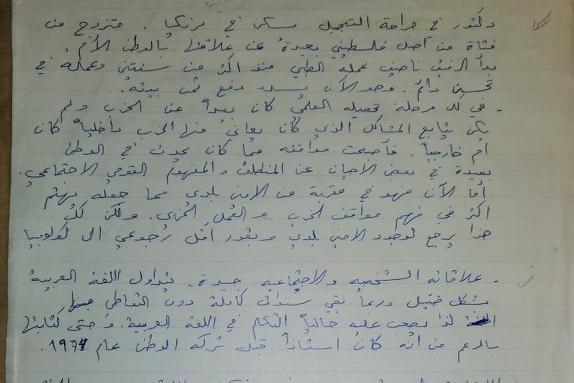 دكتور في جراحة التجميل. يسكن في . متزوج من
فتاة من أصل فلسطيني بعيدة عن علاقتها بالوطن الأم.
بدأ الرفيق ناصيف عمله الطبي منذ اكثر من سنتين وعمله في
تحسن دائم. وهو الآن يسدد دفع ثمن بيته.
- في كل مرحلة تحصيله العلمي كان بعيداً عن الحزب ولم
يكن يتابع المشاكل الذي كان يعاني منها الحزب داخلياً كان
أم خارجياً. فأصبحت مواقفه مما كان يحدث في الوطن
بعيدة في بعض الاحيان عن المنطلق والمفهوم القومي الاجتماعي.
أما الآن فهو في مقربة من الامين بلدي مما جعله يهتم
اكثر في فهم مواقف الحزب والعمل الحزبي. ولكن كل
هذا يرجع لوجود الامين بلدي وبقدر أقل رجوعي الى كولومبيا
- علاقاته الشخصية والاجتماعيه جيدة. يتداول اللغة العربية
بشكل ضئيل وربما بقي سنوات كاملة دون التعاطي فيها
لذا يصعب عليه حالياً التكلم في اللغة العربية. وحتى كتابتها
بالرغم من انه كان استاذاً قبل تركه الوطن عام